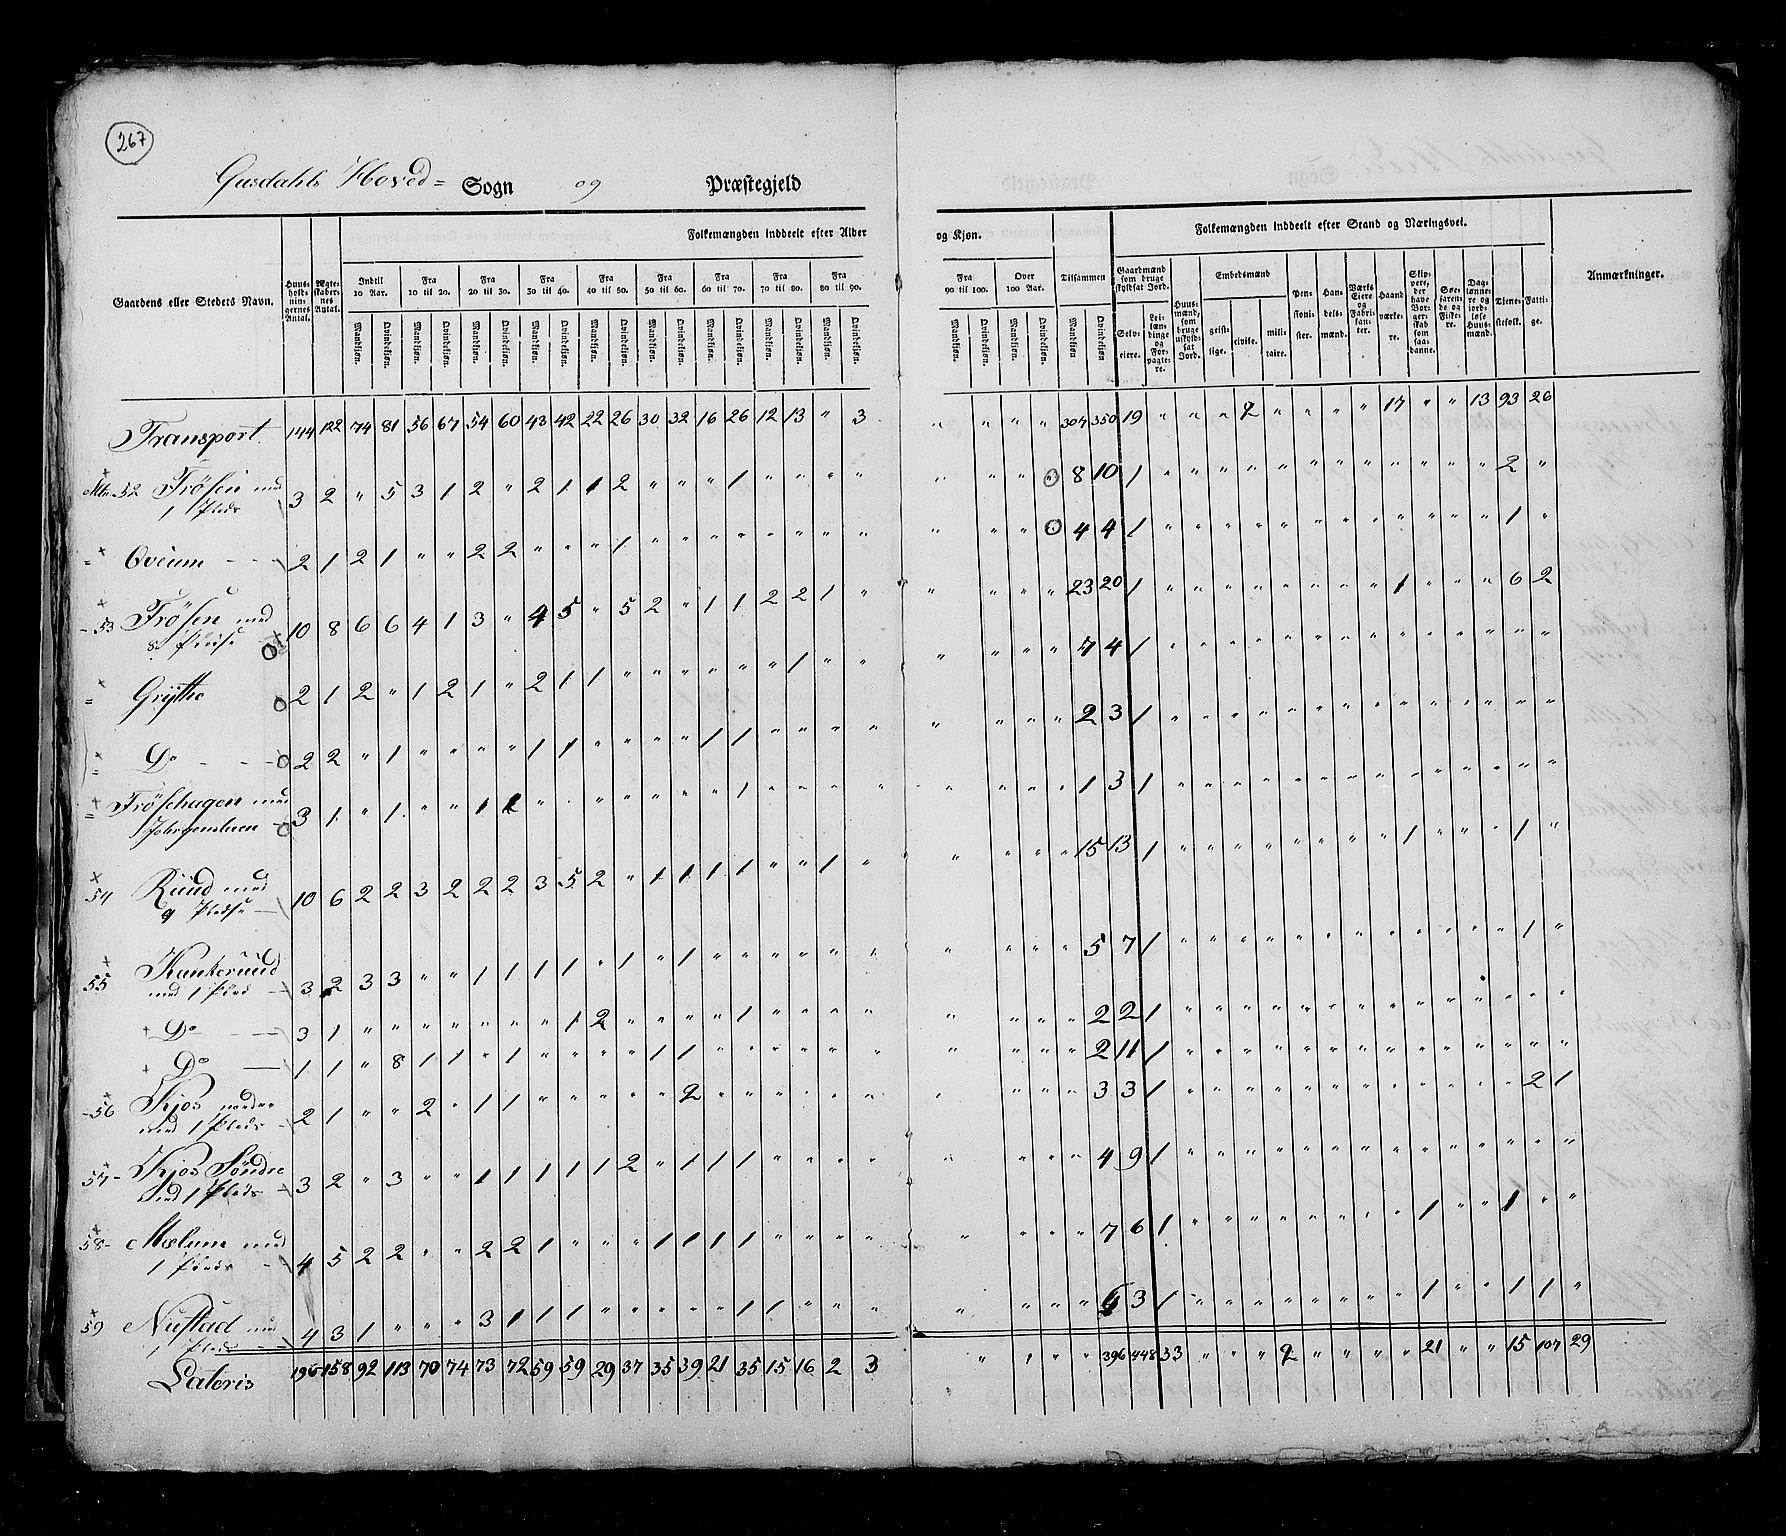 267
Gusdahls Hoved= Sogn og Præstegjeld
Gaardens eller Stedets Navn. Huusholdningernes Antal. Ægteskabernes Antal. Folkemængden inddeelt efter Alder og Kjøn. Folkemængden inddeelt efter Stand og Næringsvei. Anmærkninger.
Indtil 10 Aar. Fra 10 til 20. Fra 20 til 30. Fra 30 til 40. Fra 40 til 50. Fra 50 til 60. Fra 60 til 70. Fra 70 til 80. Fra 80 til 90. Fra 90 til 100. Over 100 Aar. Tilsammen
Mandkjøn. Qvindekjøn. Mandkjøn. Qvindekjøn. Mandkjøn. Qvindekjøn. Mandkjøn. Qvindekjøn. Mandkjøn. Qvindekjøn. Mandkjøn. Qvindekjøn. Mandkjøn. Qvindekjøn. Mandkjøn. Qvindekjøn. Mandkjøn. Qvindekjøn. Mandkjøn. Qvindekjøn. Mandkjøn. Qvindekjøn. Mandkjøn Qvindekjøn
Gaardmænd som bruge skyldsat Jord. Selveiere. Leilændinge og Forpagtere. Huusmænd, som bruge uskyldsat Jord. Embedsmænd geistlige. civile. militaire. Pensionister. Handelsmænd. Værks Eiere og Fabrikanter. Haandværkere. Skippere, der have Borgerskab som saadanne. Søefarende og Fiskere. Daglønnere og jordløse Huusmænd. Tjenestefolk. Fattige.
Transport 144 122 74 81 56 67 54 60 43 42 22 26 30 32 16 26 12 13 " 3 " " " " 307 350 19 " " " 2 " " " " 17 " " 13 93 26
Mtr. 52 Frøsen med 3 2 " 5 3 1 2 " 2 1 1 2 " " " 1 " " " " " " " " 8 10 1 " " " " " " " " " " " " 2 "
1 Plads
" Oveum 2 1 2 1 " " 2 2 " " " 1 " " " " " " " " " " " " 4 4 1 " " " " " " " " " " " " 1 "
53 Frøsen med 10 8 6 6 4 1 3 " 4 5 " 5 2 " 1 1 2 2 1 " " " " " 23 20 1 " " " " " " " " 1 " " " 6 2
8 Pladse
" Grytte 2 1 2 " 1 2 1 " 2 1 1 " " " " " " 1 " " " " " " 7 4 1 " " " " " " " " " " " " " "
" Do 2 2 " 1 " " " " 1 1 " " " " 1 1 " " " " " " " " 2 3 1 " " " " " " " " " " " " " "
" Frøsehagen med 3 1 " 1 " " 1 1 " " " " " " " 1 " " " " " " " " 1 3 1 " " " " " " " " " " " " " "
54 Rüud med 10 6 2 2 3 2 2 2 3 5 2 " 1 1 1 1 " " 1 " " " " " 15 13 1 " " " " " " " " 1 " " " 1 "
9 Pladse
55 Kankerüüd 3 2 3 3 " " 1 1 1 1 " 1 " 1 " " " " " " " " " " 5 7 1 " " " " " " " " " " " " 1 "
med 1 Plad
Do 3 1 " " " " " " " 1 2 " " " " 1 " " " " " " " " 2 2 1 " " " " " " " " " " " " " "
Do 1 1 " 8 1 1 " 1 " " " " 1 1 " " " " " " " " " " 2 11 1 " " " " " " " " " " " " " "
56 Kjos nordre 2 1 " " 2 " 1 1 " " " " " 2 " " " " " " " " " " 3 3 1 " " " " " " " " " " " " 2 1
med 1 Plads
57 Kjos Søndre 3 2 " 3 " " 1 1 1 1 1 2 " 1 1 1 " " " " " " " " 4 9 1 " " " " " " " " " " " " " "
med 1 Plads
58 Mælum med 4 5 2 2 " " 2 2 1 " " " 1 1 1 1 " " " " " " " " 7 6 1 " " " " " " " " 1 " " 1 " "
1 Plads
59 Nustad med 4 3 1 " " " 3 1 1 1 " " " " " 1 1 " " " " " " " 6 3 1 " " " " " " " " 1 " " 1 1 "
1 Plads
Lateris 196 158 92 113 70 74 73 72 59 59 29 37 35 39 21 35 15 16 2 3 " " " " 396 448 33 " " " 2 " " " " 21 " " 15 107 29